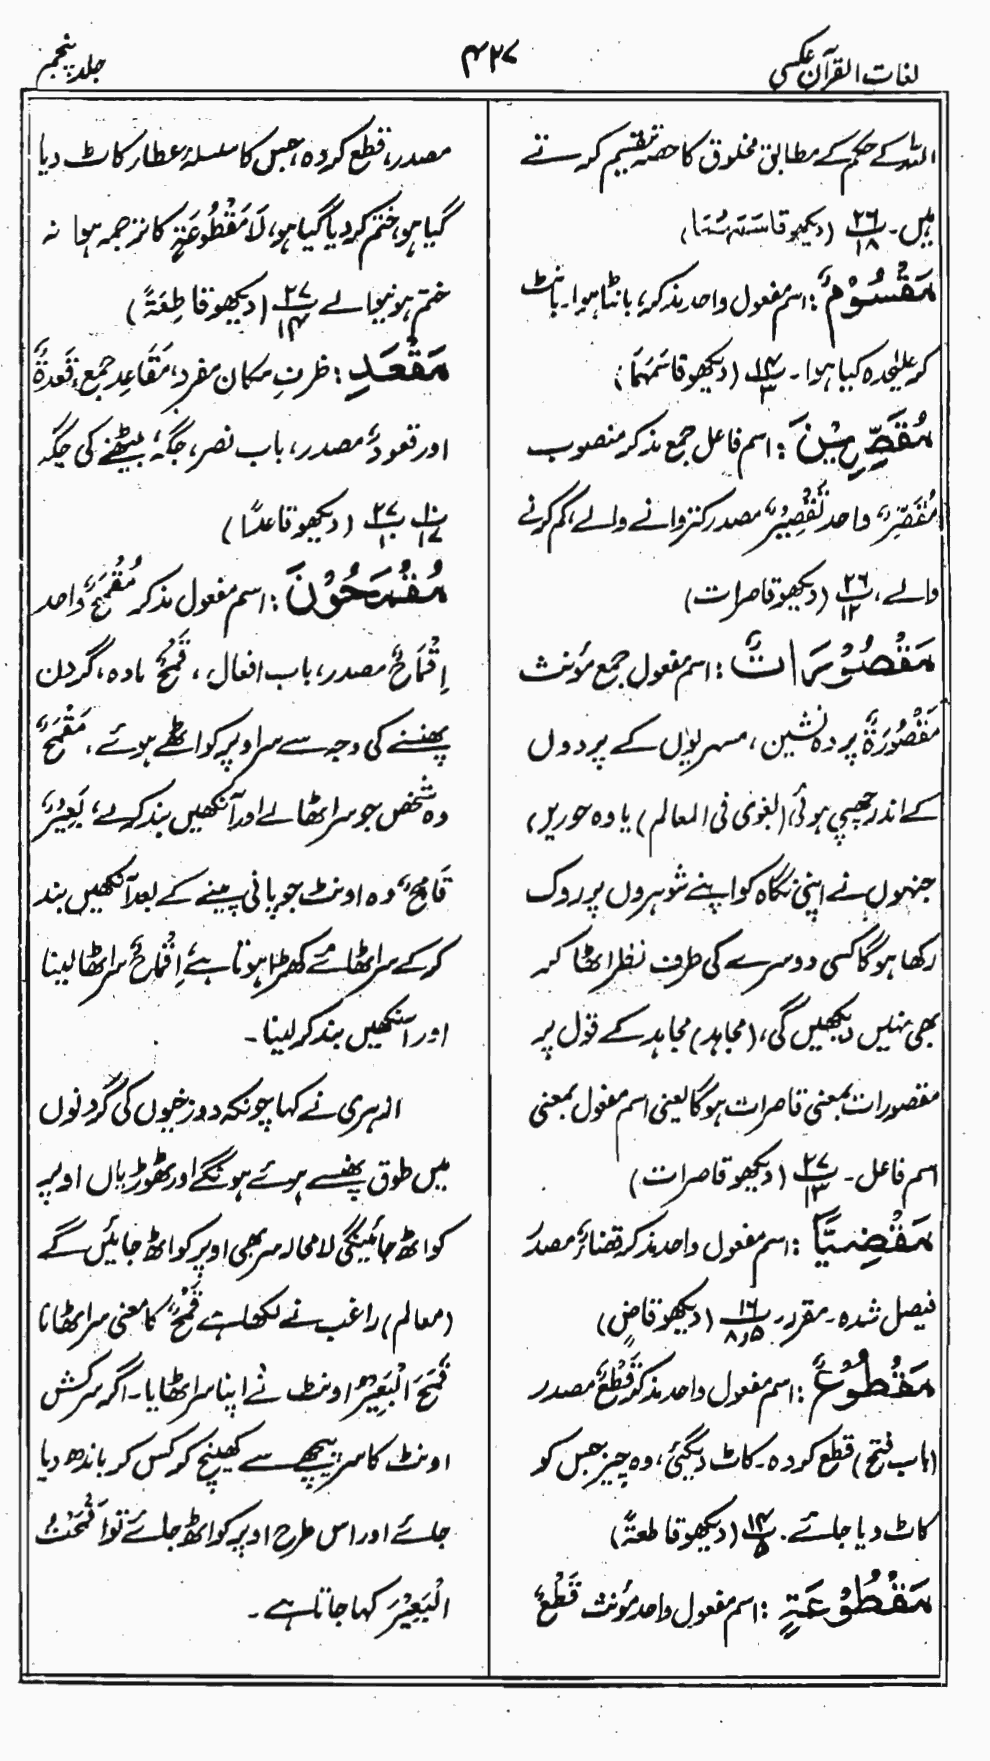 لغات القرآن عکسی
۴۲۷
جلد پنجم
اللہ کے حکم کے مطابق مخلوق کا حصہ تقسیم کرتے
ہیں۔ ۲۶/۱۸ (دیکھو قاسَمَہُمَا)
مَقْسُوْمٌ: اسم مفعول واحد مذکر، بانٹا ہوا۔ بانٹ
کر علیٰحدہ کیا ہوا۔ ۱۴/۳ (دیکھو قاسَمَہُمَا)
مُقَصِّرِیْنَ: اسم فاعل جمع مذکر منصوب
مُقَصِّرٌ واحد تَقْصِیْرٌ مصدر کتروانے والے، کم کرنے
والے، ۲۶/۱۲ (دیکھو قاصرات)
مَقْصُوْرَاتٌ: اسم مفعول جمع مؤنث
مَقْصُوْرَۃٌ پردہ نشین، مسہریوں کے پردوں
کے اندر چھپی ہوئی (بغوی فی المعالم) یا وہ حوریں
جنہوں نے اپنی نگاہ کو اپنے شوہروں پر روک
رکھا ہوگا کسی دوسرے کی طرف نظر اٹھا کر
بھی نہیں دیکھیں گی، (مجاہد) مجاہد کے قول پر
مقصورات بمعنی قاصرات ہوگا یعنی اسم مفعول بمعنی
اسم فاعل۔ ۲۷/۱۳ (دیکھو قاصرات)
مَقْضِیًّا: اسم مفعول واحد مذکر قضاءٌ مصدر
فیصل شدہ۔ مقرر۔ ۱۶/۸٫۵ (دیکھو قاضٍ)
مَقْطُوْعٌ: اسم مفعول واحد مذکر قَطْعٌ مصدر
(باب فتح) قطع کردہ۔ کاٹ دیگئی، وہ چیز جس کو
کاٹ دیا جائے۔ ۱۴/۵ (دیکھو قاطعۃً)
مَقْطُوْعَۃٍ: اسم مفعول واحد مؤنث قَطْعٌ
مصدر، قطع کردہ، جس کا سلسلۂ عطار کاٹ دیا
گیا ہو، ختم کر دیا گیا ہو، لَا مَقْطُوعَۃٍ کا ترجمہ ہوا نہ
ختم ہونیوالے ۲۷/۱۴ (دیکھو قاطِعَۃً)
مَقْعَدِ: ظرفِ مکان مفرد، مَقَاعِد جمع، قَعدۃٌ
اور قعودٌ مصدر، باب نصر، جگہ، بیٹھنے کی جگہ
۱۰/۱۷ ۲۷/۱۰ (دیکھو قاعدًا)
مُقْمَحُوْنَ: اسم مفعول مذکر مُقْمَحٌ واحد
اِقْمَاحٌ مصدر، باب افعال، قَمْحٌ مادہ، گردن
پھنسنے کی وجہ سے سر اوپر کو اٹھے ہوئے، مُقْمَحٌ
وہ شخص جو سر اٹھالے اور آنکھیں بند کرلے، بَعِیْرٌ
قَامِحٌ وہ اونٹ جو پانی پینے کے بعد آنکھیں بند
کر کے سر اٹھائے کھڑا ہوتا ہے اِقْمَاحٌ سر اٹھا لینا
اور آنکھیں بند کر لینا۔
ازہری نے کہا چونکہ دوزخیوں کی گردنوں
میں طوق پھنسے ہوئے ہونگے اور ٹھوڑیاں اوپر
کو اٹھ جائینگی لامحالہ سر بھی اوپر کو اٹھ جائیں گے
(معالم) راغب نے لکھا ہے قَمْحٌ کا معنی سر اٹھانا
قَمَحَ الْبَعِیْرُ اونٹ نے اپنا سر اٹھایا۔ اگر سرکش
اونٹ کا سر پیچھے سے کھینچ کر کس کر باندھ دیا
جائے اور اس طرح اوپر کو اٹھ جائے تو اَقْمَحْتُ
الْبَعِیْرَ کہا جاتا ہے۔